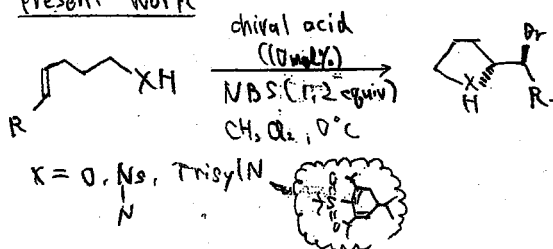 Present Work
chiral acid
(10 mol%)
NBS (1.2 equiv)
CH2Cl2, 0°C
XH
R
Br
X
H
R
X = O, Ns, TrisylN
N
O
S
O